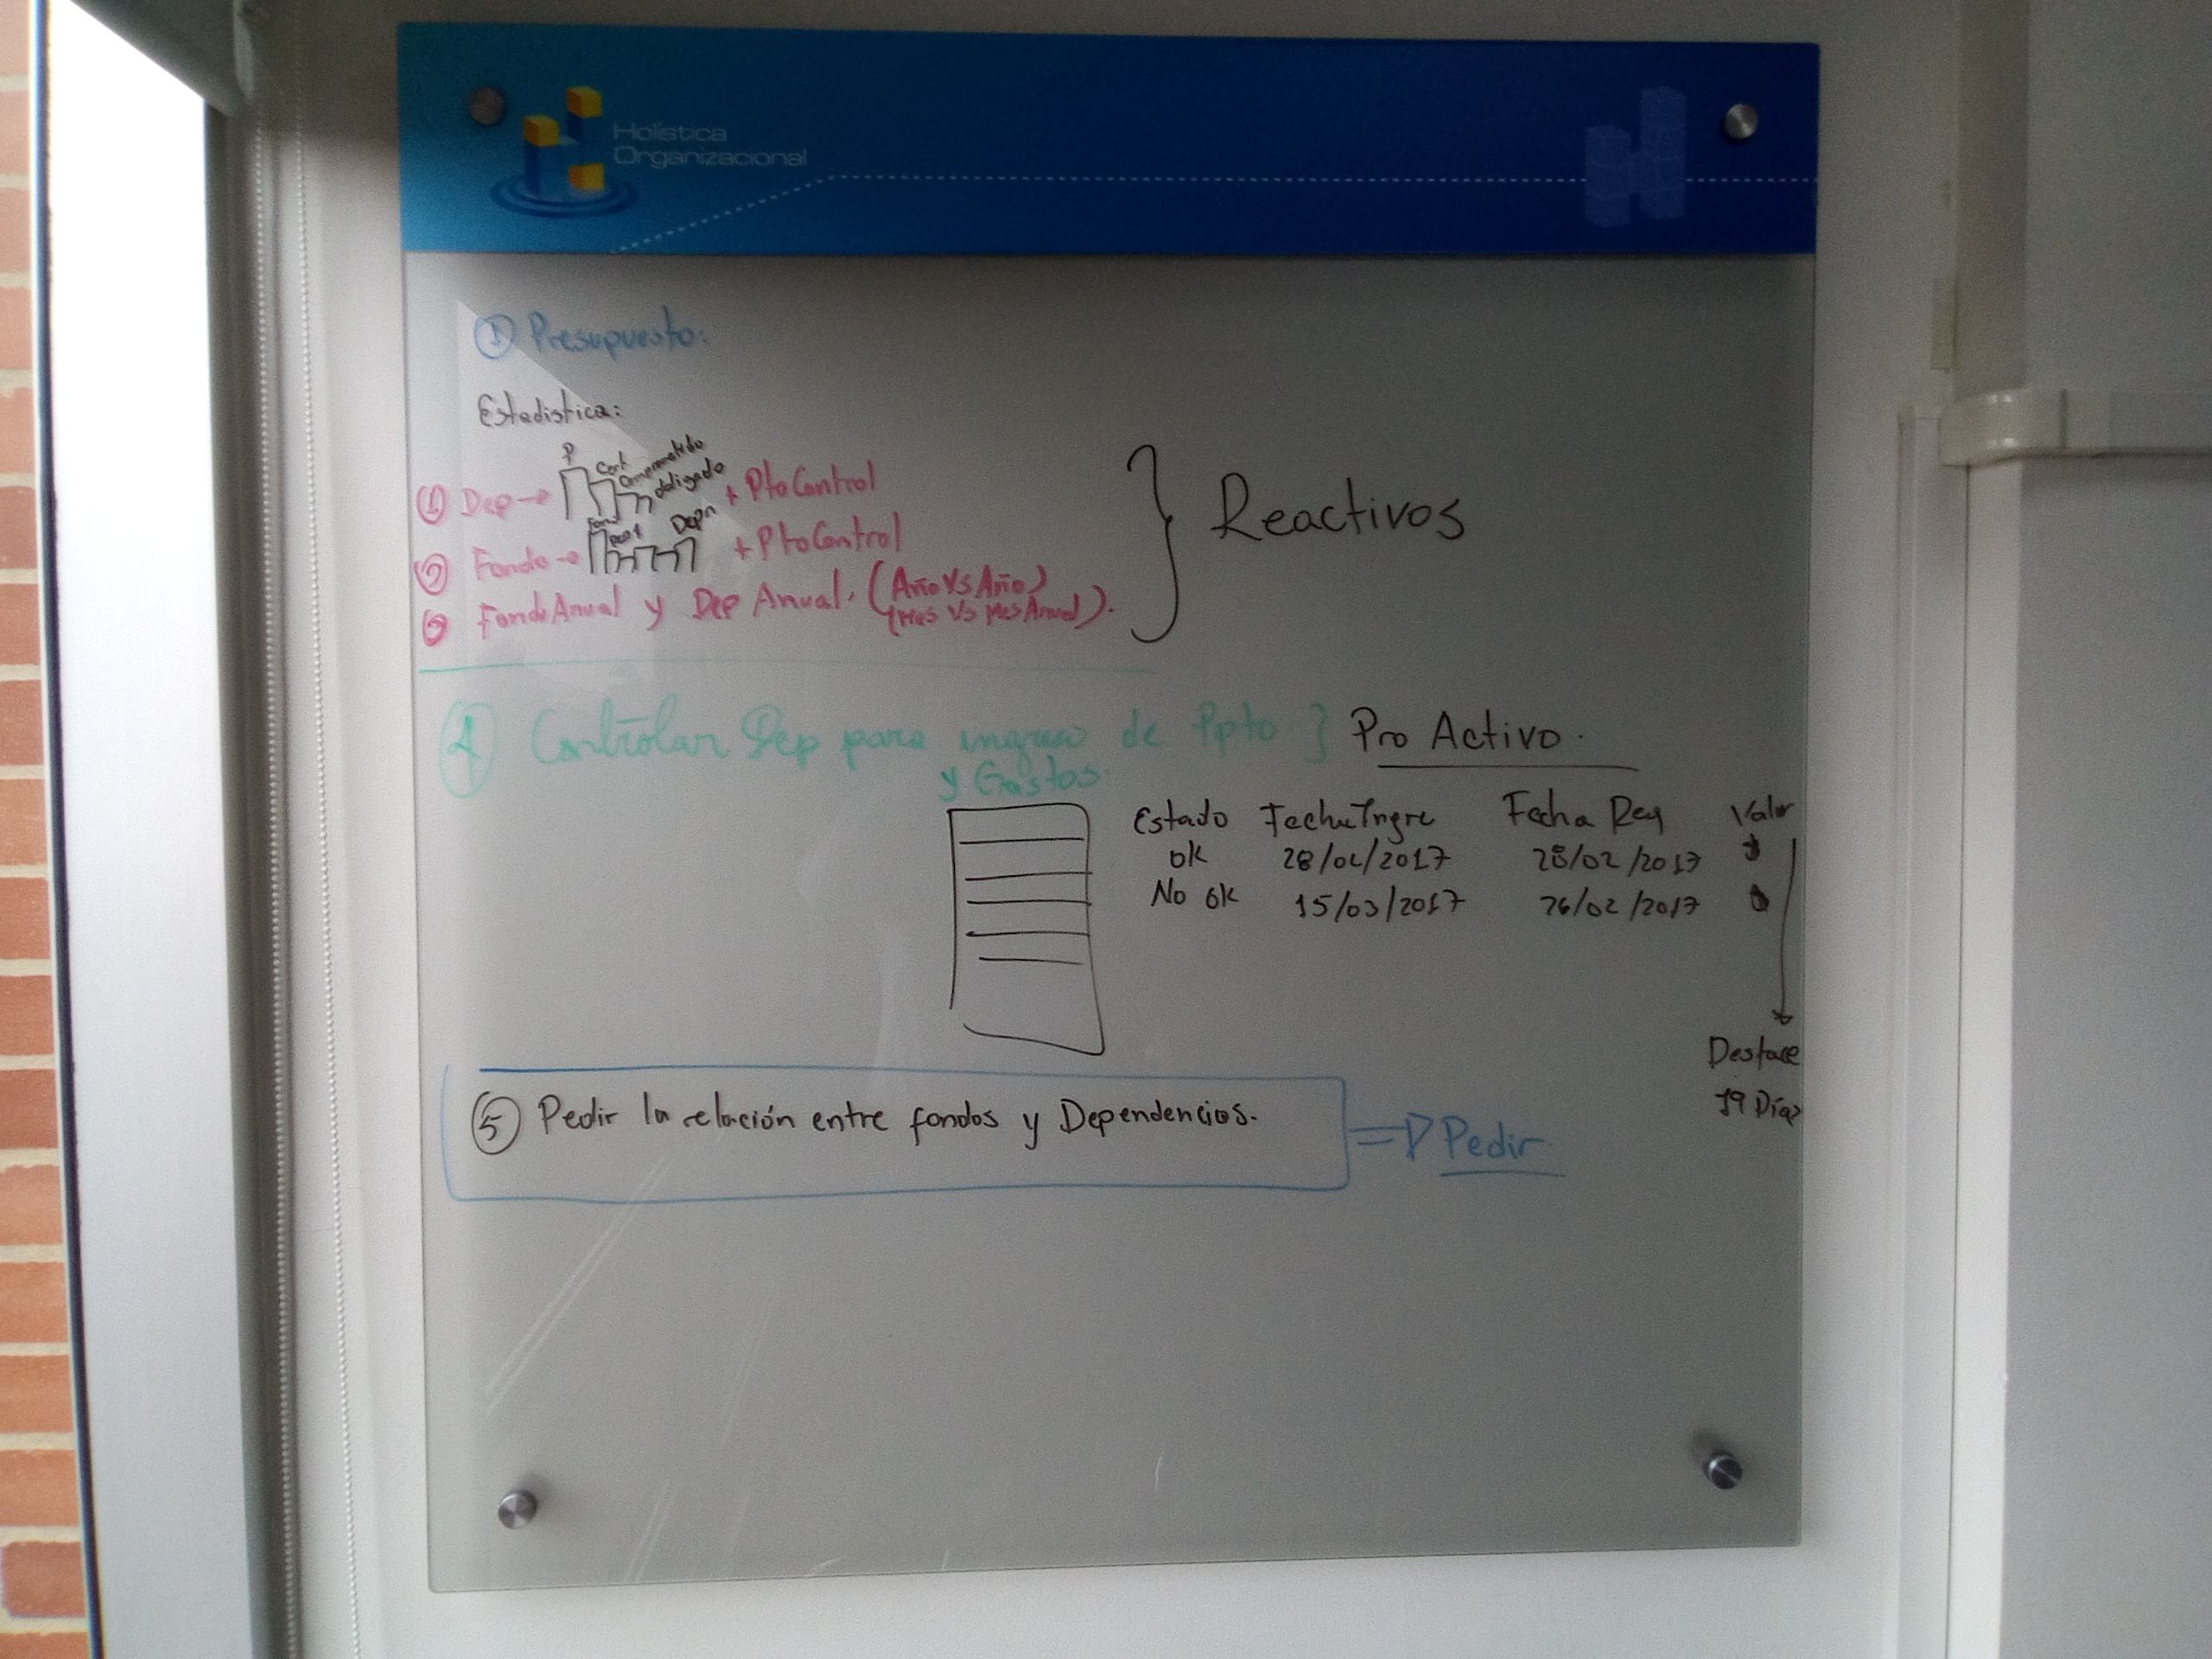 Holística
Organizacional
① Presupuesto:
Estadistica:
P
Cert
Comprometido
obligado
① Dep → + Pto Control
Fond
Dep1
Depn
② Fondo → + Pto Control
③ Fondo Anual y Dep Anual. (Año Vs Año)
(Mes Vs Mes Anual).
} Reactivos
4 Controlar Dep para ingreso de Ppto } Pro Activo.
y Gastos
Estado Fecha Ingre Fecha Reg Valor
ok 28/02/2017 28/02/2017 $
No ok 15/03/2017 26/02/2017 $
Desface
19 Días
⑤ Pedir la relación entre fondos y Dependencias.
⇒ Pedir.